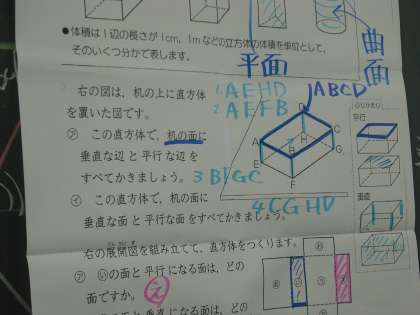 ●体積は1辺の長さが1cm、1mなどの立方体の体積を単位として、
そのいくつ分かで表します。
平面
曲面
右の図は、机の上に直方体
を置いた図です。
1.AEHD
2.AEFB
ABCD
㋐ この直方体で、机の面に
垂直な辺 と 平行な 辺 を
すべてかきましょう。
3 BFGC
㋑ この直方体で、机の面に
垂直な面 と 平行な面 をすべてかきましょう。
4 CGHD
D
A
B
C
H
E
F
G
平行
垂直
右の展開図を組み立てて、直方体をつくります。
㋐ ㋑の面と 平行 になる面は、どの
面ですか。
え